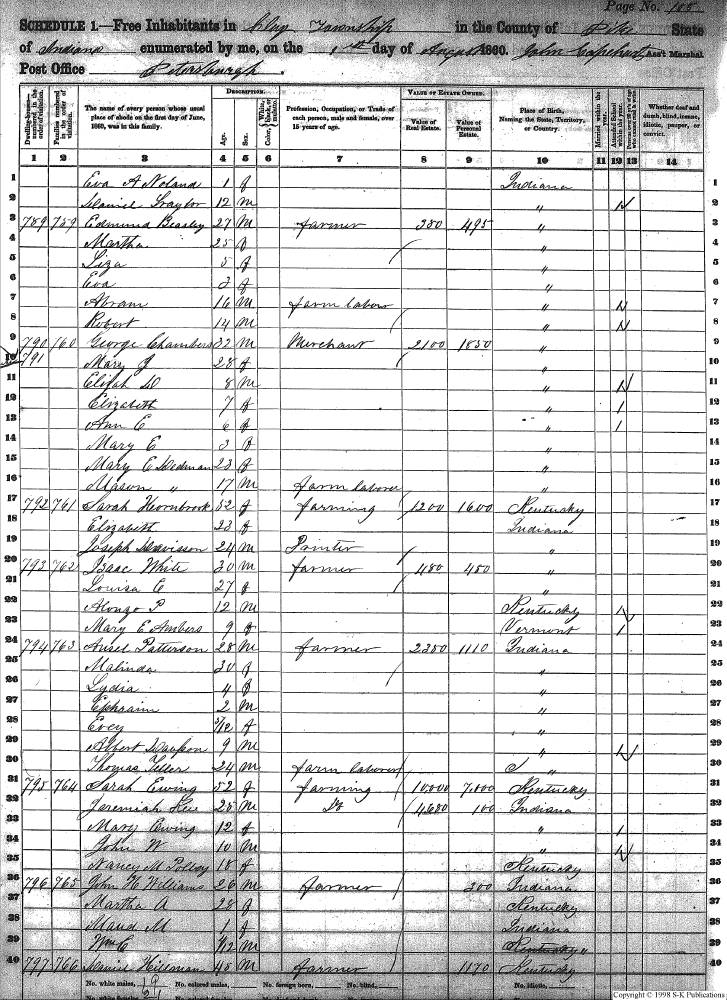 Page No. 105
SCHEDULE 1.—Free Inhabitants in Clay Township in the County of Pike State
of Indiana enumerated by me, on the 1st day of August 1860. John Capehart Ass't Marshal.
Post Office Petersburgh.
Dwelling-houses numbered in the order of visitation.
Families numbered in the order of visitation.
The name of every person whose usual place of abode on the first day of June, 1860, was in this family.
DESCRIPTION.
Age.
Sex.
Color, White, black, or mulatto.
Profession, Occupation, or Trade of each person, male and female, over 15 years of age.
VALUE OF ESTATE OWNED.
Value of Real Estate.
Value of Personal Estate.
Place of Birth, Naming the State, Territory, or Country.
Married within the year.
Attended School within the year.
Whether deaf and dumb, blind, insane, idiotic, pauper, or convict.
1 2 3 4 5 6 7 8 9 10 11 12 13 14
1 Eva A Noland 1 f Indiana 1
2 Traylor 12 m " 2
3 789 759 Edmund Beasley 27 M farmer 350 495 " 3
4 Martha 25 f " 4
5 Liza 5 f " 5
6 Eva 3 f " 6
7 Abram 16 M farm labor " 7
8 Robert 14 m " 8
9 790 760 George Chambers 32 M Merchant 2100 1850 " 9
10 791 Mary J 28 f " 10
11 Elijah D 8 m " 11
12 Elizabeth 7 f " 1 12
13 Ann E 6 f " 1 13
14 Mary E 3 f " 14
15 Mary E Dedman 23 f " 15
16 Mason " 17 M farm laborer " 16
17 792 761 Sarah Hornbrook 52 f farming 1200 1600 Kentucky 17
18 Elizabeth 23 f Indiana 18
19 Joseph Davisson 24 m Printer " 19
20 793 762 Isaac White 30 m farmer 480 450 " 20
21 Louisa E 27 f " 21
22 Alonzo P 12 M Kentucky 22
23 Mary E Ambers 9 f Vermont 1 23
24 794 763 Ansel Patterson 28 M farmer 2350 1110 Indiana 24
25 Malinda 30 f " 25
26 Lydia 4 f " 26
27 Ephraim 2 m " 27
28 Evey /12 f " 28
29 Albert 9 m " 29
30 Thomas Teller 24 m farm laborer " 30
31 795 764 Sarah Ewing 52 f farming 10,000 7,000 Kentucky 31
32 Jeremiah 25 m Do 4,680 100 Indiana 32
33 Mary Ewing 12 f " 1 33
34 John W 10 m " 34
35 Nancy M 18 f Kentucky 35
36 796 765 John H Williams 26 m farmer 300 Indiana 36
37 Martha A 28 f Kentucky 37
38 Maud M 1 f Indiana 38
39 Wm C /12 m Kentucky " 39
40 797 766 Hillman 45 m farmer 1170 Kentucky 40
No. white males, 19 No. colored males, No. foreign born, No. blind, No. idiotic,
No. white females, 21
Copyright © 1998 S-K Publications